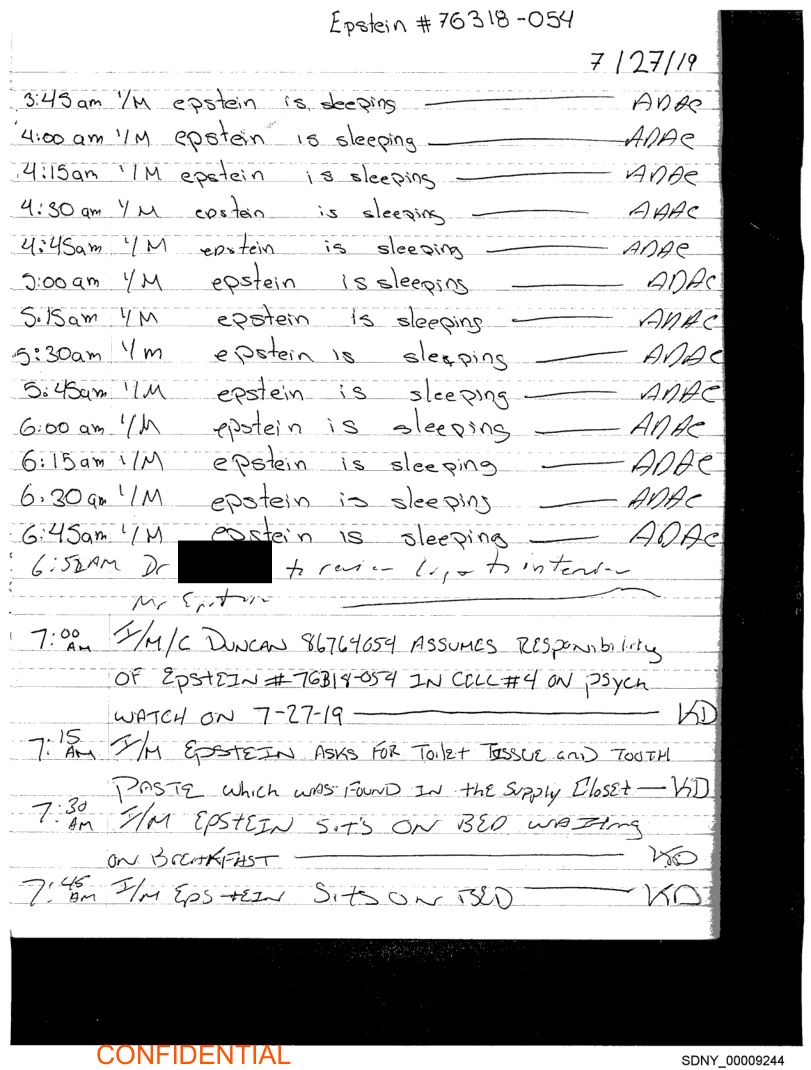 Epstein # 76318-054
7/27/19
3:45am I/M epstein is sleeping ADAC
4:00 am I/M epstein is sleeping ADAC
4:15am I/M epstein is sleeping ADAC
4:30 am I/M epstein is sleeping ADAC
4:45am I/M epstein is sleeping ADAC
5:00 am I/M epstein is sleeping ADAC
5:15am I/M epstein is sleeping ADAC
5:30am I/m epstein is sleeping ADAC
5:45am I/M epstein is sleeping ADAC
6:00 am I/M epstein is sleeping ADAC
6:15am I/M epstein is sleeping ADAC
6:30am I/M epstein is sleeping ADAC
6:45am I/M epstein is sleeping ADAC
6:52AM Dr to review to
Mr Epstein
7:00 AM I/M/C DUNCAN 86764054 ASSUMES RESponsibility
OF EpstEIN # 76318-054 IN CELL #4 ON psych
WATCH ON 7-27-19 KD
7:15 AM I/M EPSTEIN ASKS FOR ToilEt TISSUE and TOOTH
PASTE which was FOUND IN the Supply Closet KD
7:30 AM I/M EPSTEIN SitS ON BED WAITIng
ON BREAKFAST KD
7:45 AM I/M EPSTEIN SitS ON BED KD
CONFIDENTIAL
SDNY_00009244